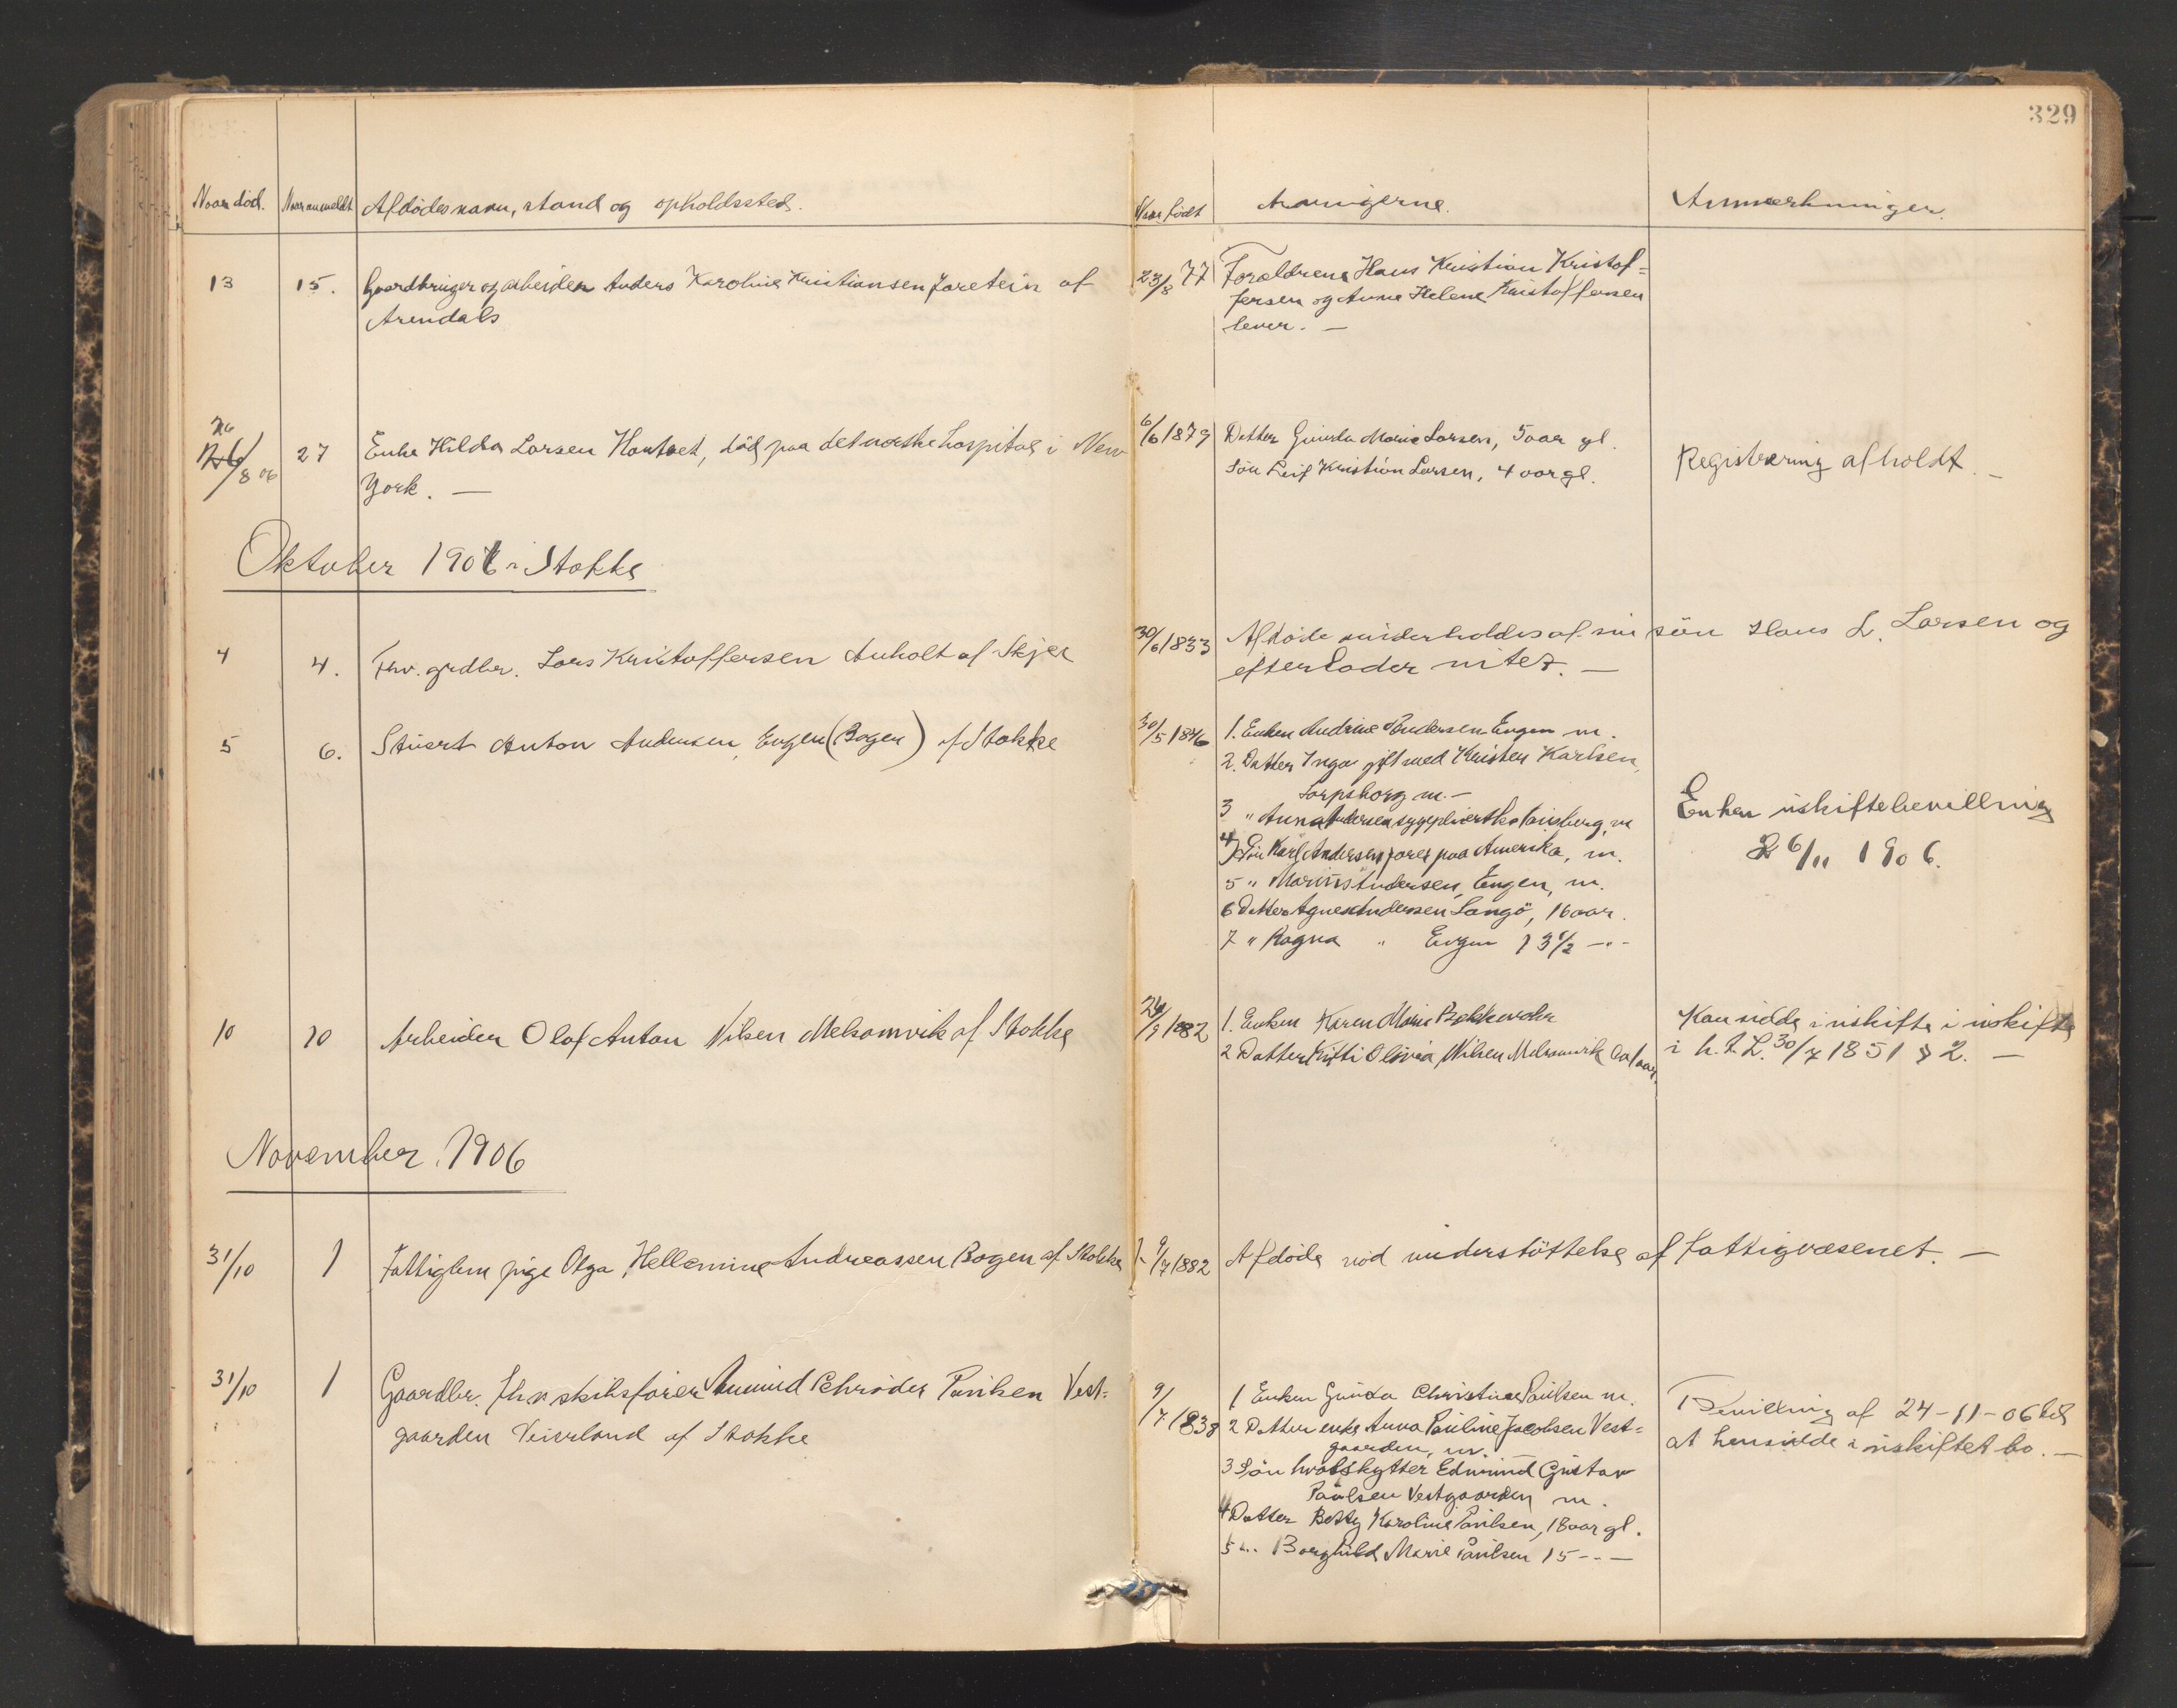 329
Naar död. Naar anmeldt Afdödes navn, stand og opholdssted. Naar födt Arvingerne. Anmerkninger.
13 15. Gaardbruger og arbeider Anders Karolius Kristiansen af 23/8 77 Forældrene Hans Kristian Kristof=
Arendals fersen og Anne Helene Kristoffersen
lever. —
26/8 06 27 Enke Hilda Larsen, död paa det norske hospital i New 6/6 1879 Datter Gunda Marie Larsen, 5 aar gl.
York. — Sön Leif Kristian Larsen, 4 aar gl. Registrering afholdt. —
Oktober 1906 i Stokke
4 4. Fhv. grdbr. Lars Kristoffersen Anholt af Skjee 30/6 1833 Afdöde underholdes af sin sön Hans L. Larsen og
efterlader intet. —
5 6. Stuert Anton Andersen, Engen (Bogen) af Stokke 30/5 1846 1. Enken Andrine Andersen Engen m.
2. Datter Inga gift med Kristen Karlsen,
Sarpsborg m. —
3 " Anna Andersen sygepleierske Tönsberg, m
4 Sön Karl Andersen farer paa Amerika, m.
5 " Marius Andersen, Engen, m.
6 Datter Agnes Andersen Langö, 16 aar.
7 " Ragna " Engen 13 1/2 -"-
Enken uskiftebevilling
6/11 1906.
10 10 Arbeider Olaf Anton Nilsen Melsomvik af Stokke 26/9 1882 1. Enken Karen Marie
2 Datter Olivia Nilsen Melsomvik aar.
Kan sidde i uskifte i uskifte
i h. t. L. 30/7 1851 § 2. —
November 1906
31/10 1 Fattiglem pige Olga Hellemine Andreassen Bogen af Stokke 9/7 1882 Afdöde nöd understöttelse af fattigvæsenet. —
31/10 1 Gaardbr. fhv skibsförer Schröder Paulsen Vest=
gaarden Veierland af Stokke
9/7 1838 1 Enken Gunda Christine Paulsen m.
2 Datter enke Anna Pauline Jacobsen Vest=
gaarden, m.
3 Sön hvalskytter Edmund Gustav
Paulsen Vestgaarden m.
4 Datter Betty Karoline Paulsen, 18 aar gl.
5 -"- Borghild Marie Paulsen 15 -"- —
Bevilling af 24-11-06 til
at hensidde i uskiftet bo. —